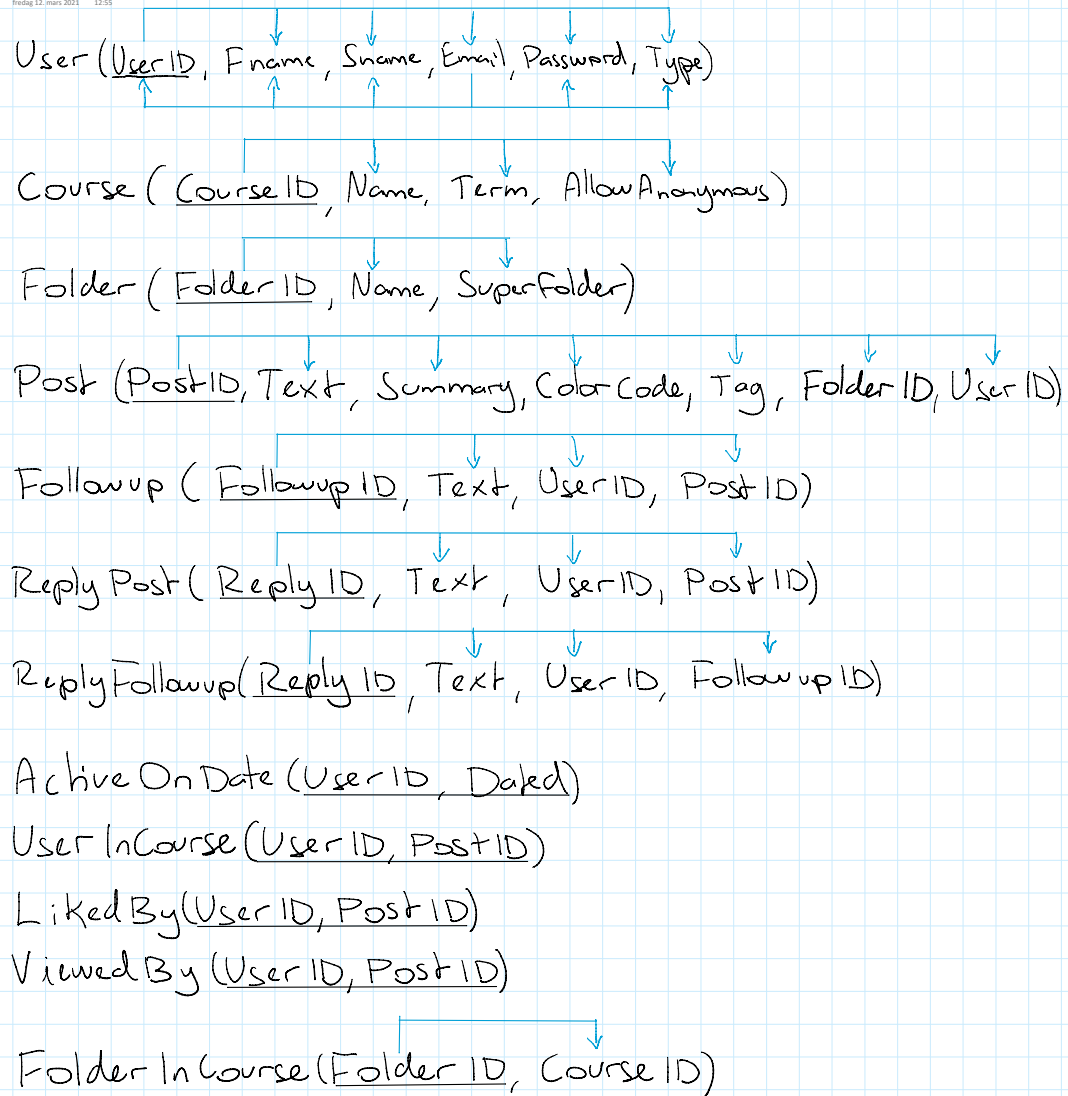 fredag 12. mars 2021 12:55
User (UserID, Fname, Sname, Email, Password, Type)
Course ( CourseID, Name, Term, AllowAnonymous)
Folder ( FolderID, Name, SuperFolder)
Post (PostID, Text, Summary, ColorCode, Tag, FolderID, UserID)
Followup ( FollowupID, Text, UserID, PostID)
ReplyPost ( ReplyID, Text, UserID, PostID)
ReplyFollowup( ReplyID, Text, UserID, FollowupID)
ActiveOnDate (UserID, Dated)
UserInCourse (UserID, PostID)
LikedBy (UserID, PostID)
ViewedBy (UserID, PostID)
FolderInCourse (FolderID, CourseID)